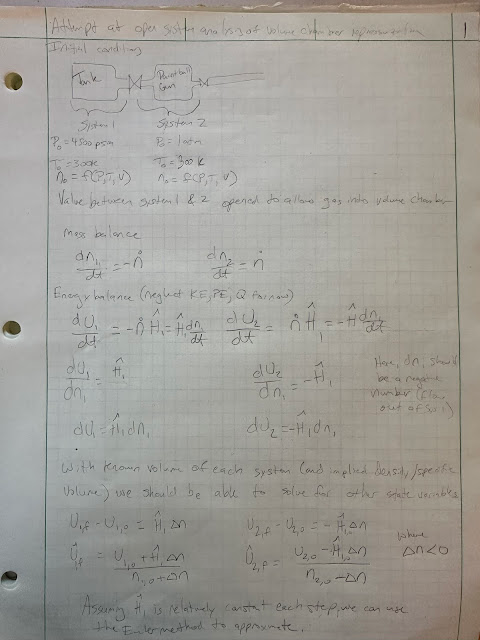 Attempt at open system analysis of volume chamber representation 1
Initial conditions
Tank Paintball Gun
System 1 System 2
P₀ = 4500 psia P₀ = 1 atm
T₀ = 300K T₀ = 300 K
n₀ = f(P,T,V) n₀ = f(P,T,V)
Valve between system 1 & 2 opened to allow gas into volume chamber
Mass balance
dn₁/dt = -ṅ dn₂/dt = ṅ
Energy balance (neglect KE, PE, Q for now)
dU₁/dt = -ṅĤ₁ = Ĥ₁ dn₁/dt dU₂/dt = ṅĤ₁ = -Ĥ₁ dn₁/dt
dU₁/dn₁ = Ĥ₁ dU₂/dn₁ = -Ĥ₁
Here, dn₁ should
be a negative
number (flow
out of Sys 1)
dU₁ = Ĥ₁dn₁ dU₂ = -Ĥ₁dn₁
With known volume of each system (and implied density/specific
volume) we should be able to solve for other state variables
U₁,f - U₁,₀ = Ĥ₁Δn U₂,f - U₂,₀ = -Ĥ₁Δn
Û₁,f = (U₁,₀ + Ĥ₁Δn)/(n₁,₀ + Δn) Û₂,f = (U₂,₀ - Ĥ₁Δn)/(n₂,₀ - Δn) where Δn<0
Assuming Ĥ₁ is relatively constant each step, we can use
the Euler method to approximate.